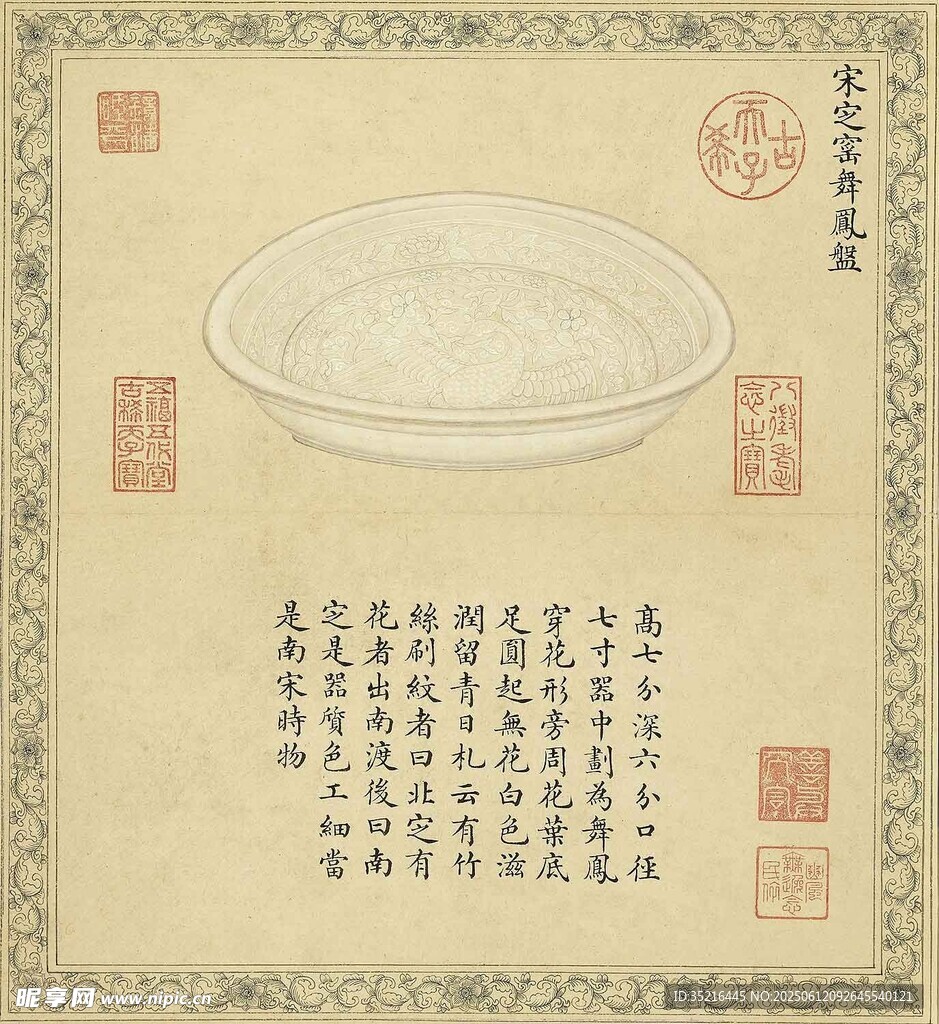 宋定窰舞鳳盤
古希天子
五福五代堂古稀天子寶
八徵耄念之寶
高七分深六分口徑
七寸器中劃為舞鳳
穿花形旁周花葉底
足圓起無花白色滋
潤留青日札云有竹
絲刷紋者曰北定有
花者出南渡後曰南
定是器質色工細當
是南宋時物
昵享网 www.nipic.cn
ID:35216445 NO:20250612092645540121